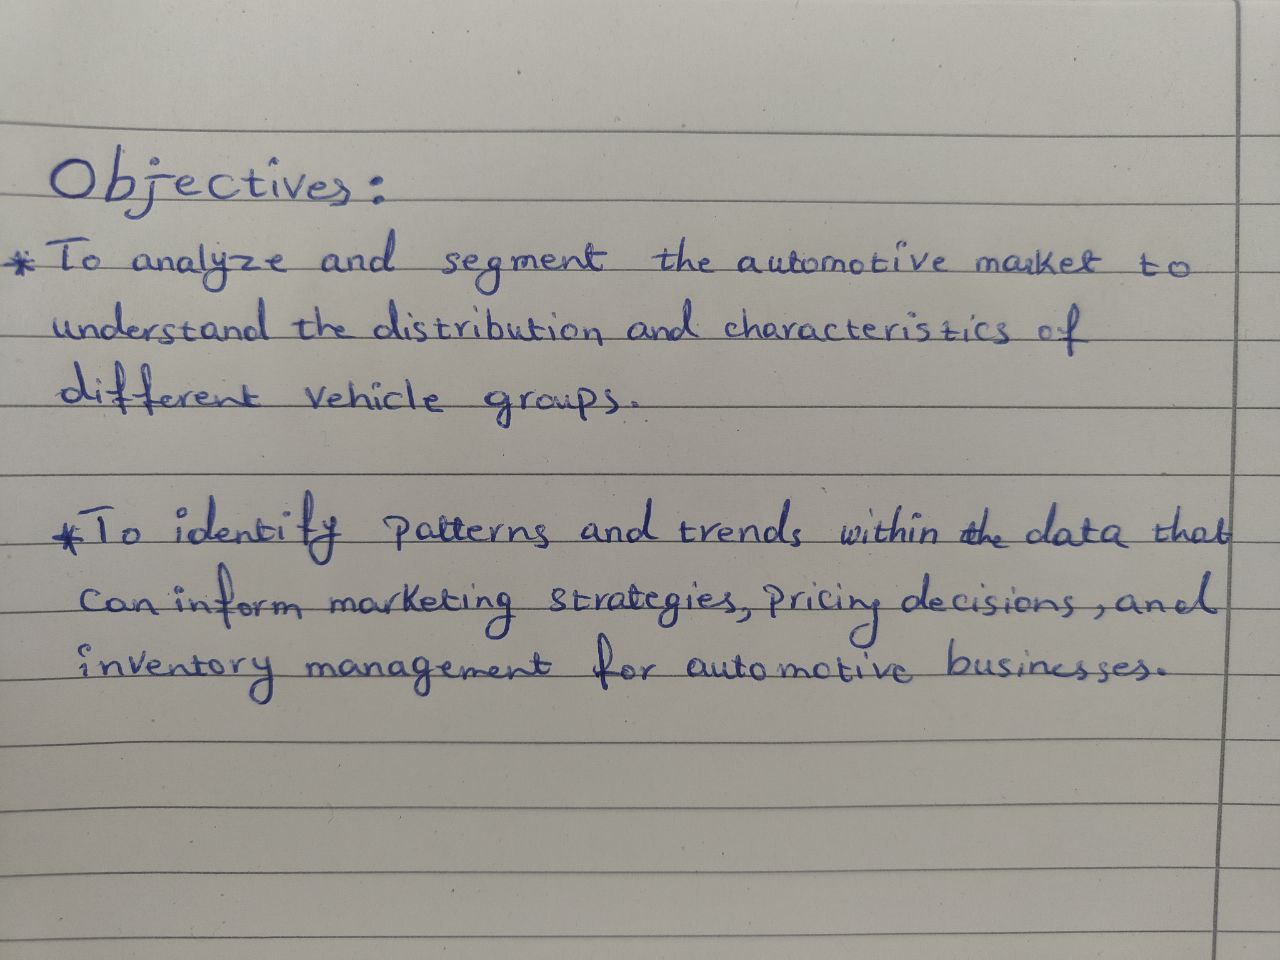 Objectives:
* To analyze and segment the automotive market to
understand the distribution and characteristics of
different vehicle groups.
* To identify patterns and trends within the data that
can inform marketing strategies, pricing decisions, and
inventory management for automotive businesses.